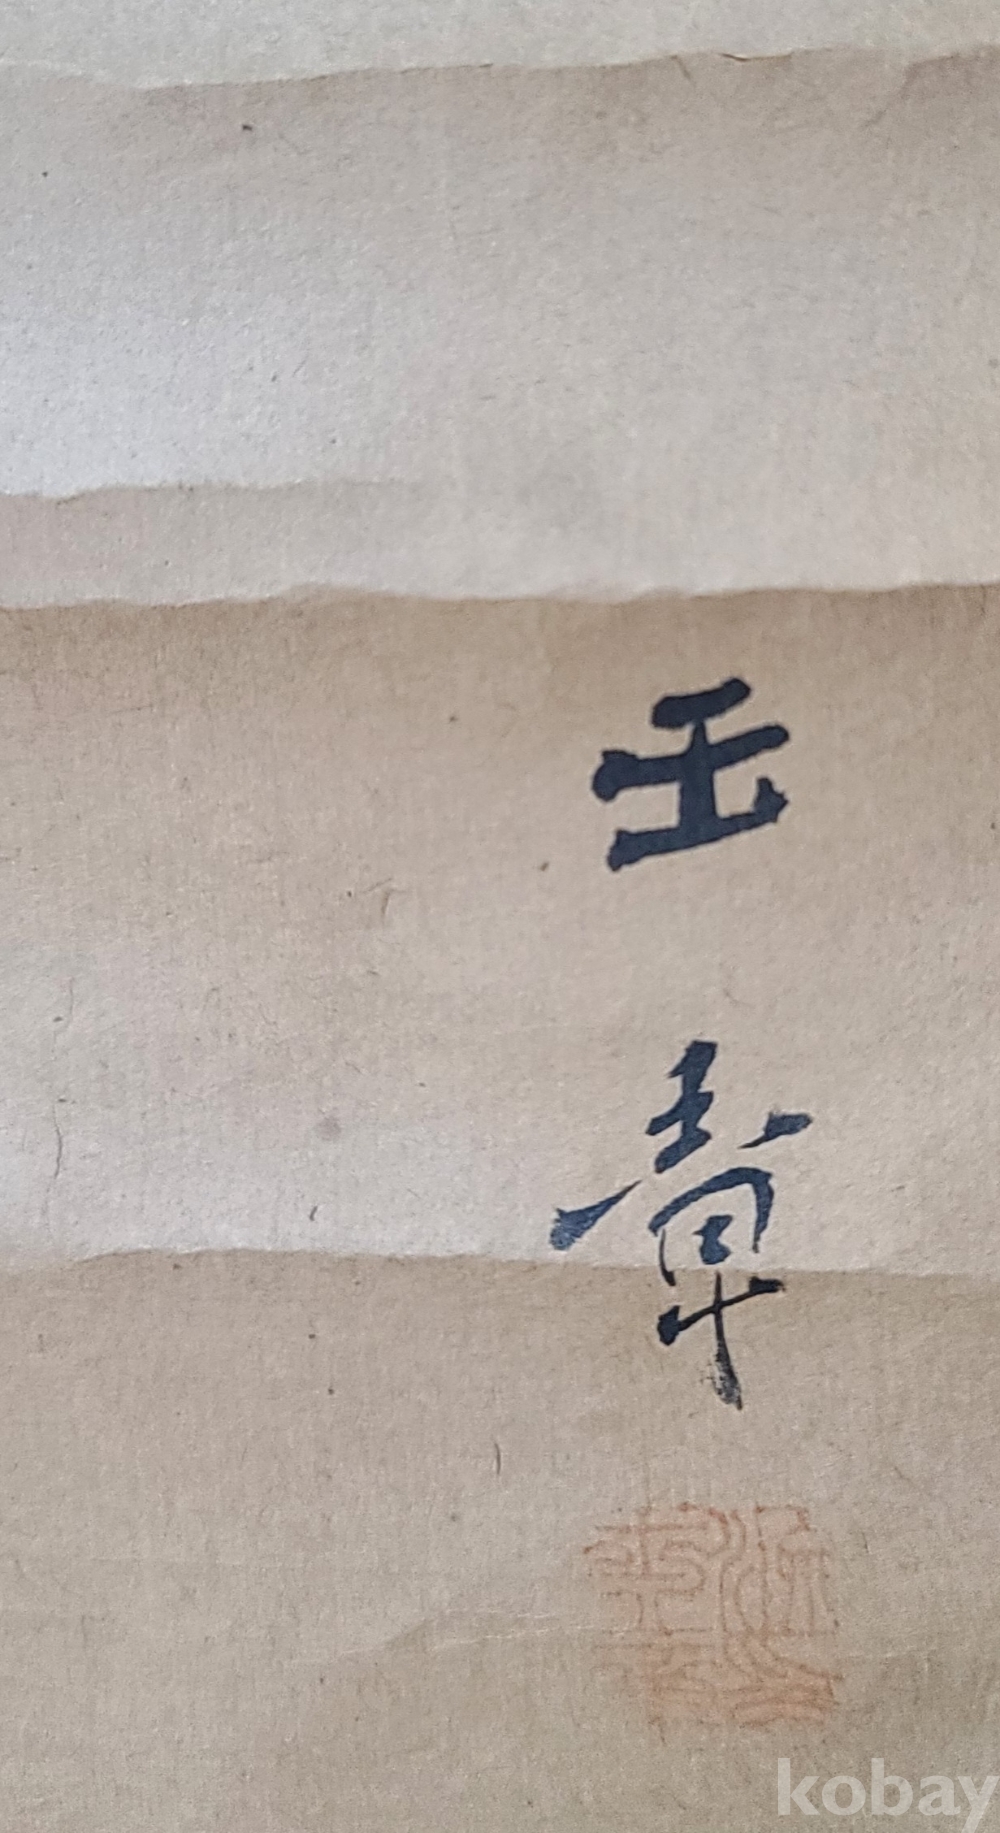 玉
章
kobay